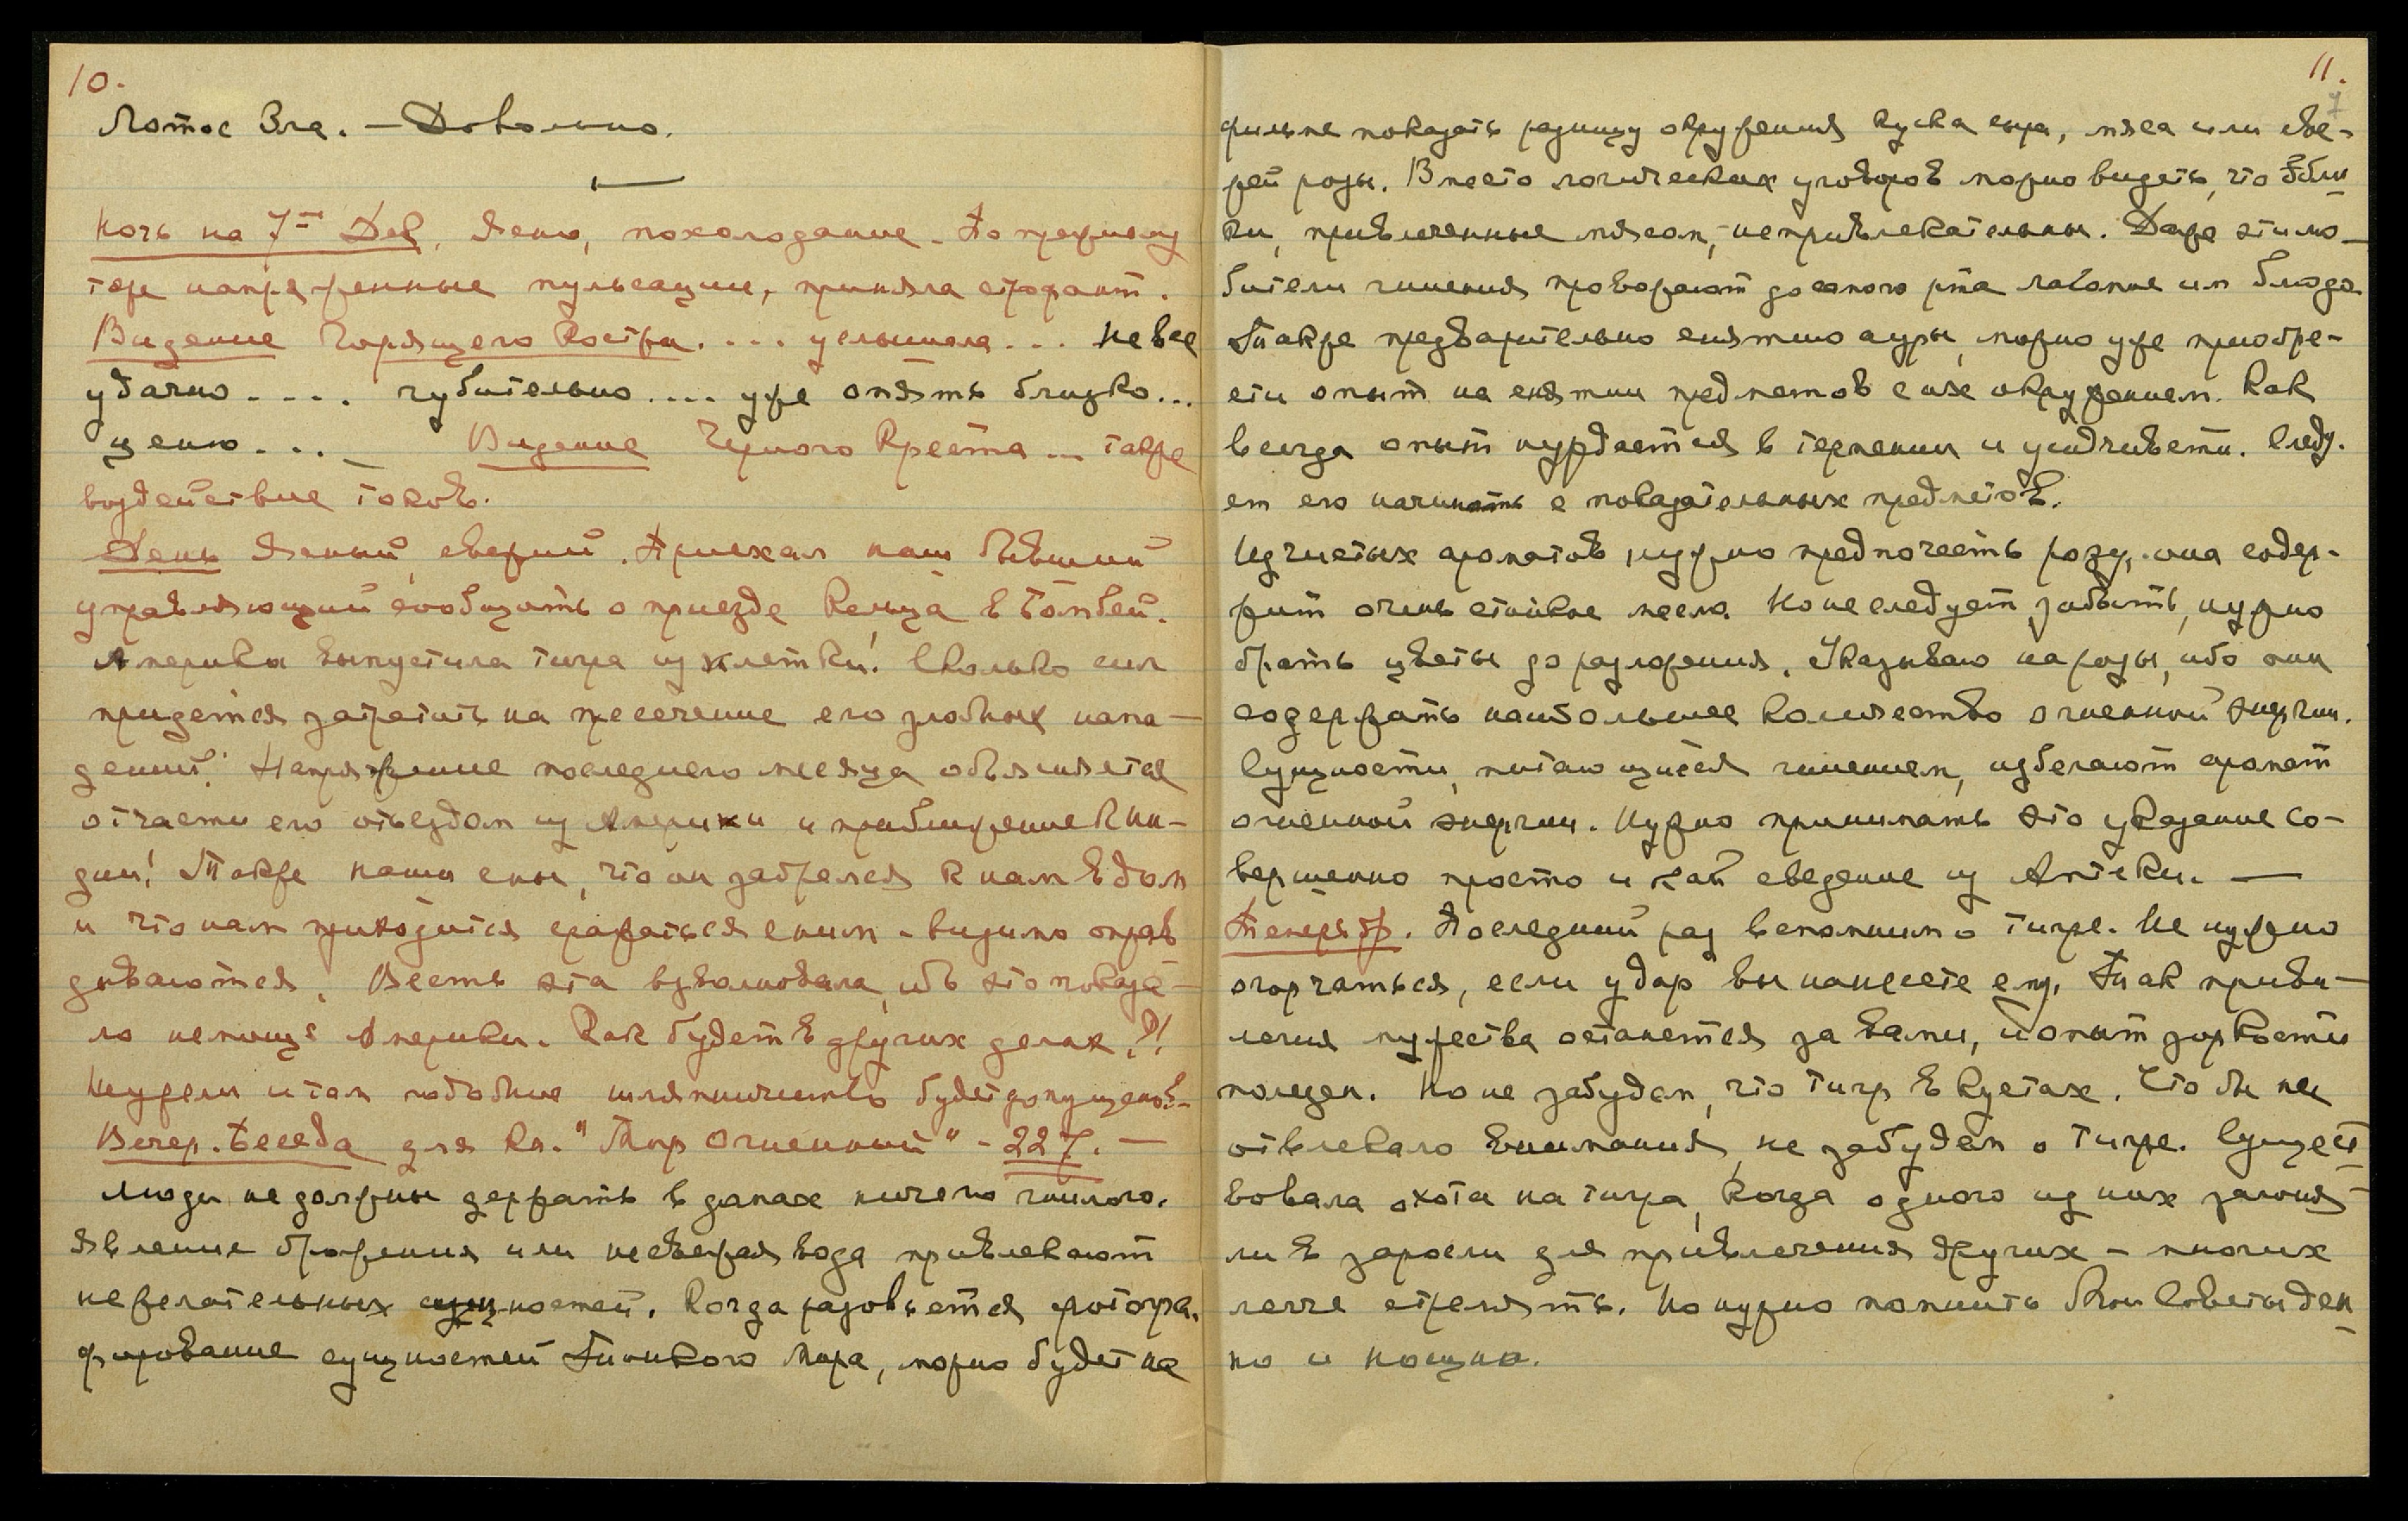 10.
Лотос Вла. — Довольно.
Ночь на 7ое Дек. Ясно, похолодание. По прежнему
теже напряженные пульсации, приняла строфант.
Видение Горящего Костра.... услышала... Не все
удачно.... губительно.... уже опять близко...
ценю.... Видение Черного Креста... также
воздействие токов.
День ясный, свежий. Приехал наш бывший
управляющий сообщить о приезде Кельца в Бомбей.
Америка выпустила тигра из клетки! Сколько сил
придется затратить на пресечение его злобных напа-
дений! Напряжение последнего месяца объясняется
отчасти его отъездом из Америки и приближение к Ин-
дии! Также наши сны, что он забрался к нам в дом
и что нам приходится сражаться с ним - видимо оправ
дываются. Весть эта взволновала, ибо это показа-
ло немощь Америки. Как будет в других делах?!
Неужели и там подобное шляпничество будет допущено?
Вечер. Беседа для кн. "Мир Огненный" - 227. —
Люди не должны держать в домах ничего гнилого.
Явление брожения или несвежая вода привлекают
нежелательных сущностей. Когда разовьется фотогра.
фирование сущностей Тонкого Мира, можно будет на
11.
фильме показать разницу окружения куска сыра, мяса или све-
жей розы. Вместо логических уговоров можно видеть, что обли
ки, привлеченные мясом, - непривлекательны. Даже эти лю-
бители гниения провожают до самого рта лакомые им блюда.
Также предварительно снятию ауры, можно уже приобре-
сти опыт на снятии предметов с их окружением. Как
всегда опыт нуждается в терпении и усидчивости. Следу.
ет его начинать с показательных предметов.
Из чистых ароматов нужно предпочесть розу, она содер-
жит очень стойкое масло. Но не следует забыть, нужно
брать цветы до разложения. Указываю на розы, ибо они
содержать наибольшее количество огненной энергии.
Сущности, питающиеся гниением, избегают аромат
огненной энергии. Нужно принимать это указание со-
вершенно просто и как сведение из Аптеки. —
Теперь др. Последний раз вспомним о тигре. Не нужно
огорчаться, если удар вы нанесете ему. Так приви-
легия мужества останется за вами, и опыт зоркости
полезен. Но не забудем, что тигр в кустах. Что бы ни
отвлекало внимания, не забудем о тигре. Сущест
вовала охота на тигра, когда одного из них загоня-
ли в заросли для привлечения других - многих
легче стрелять. Но нужно помнить Мои Советы ден
но и нощно.